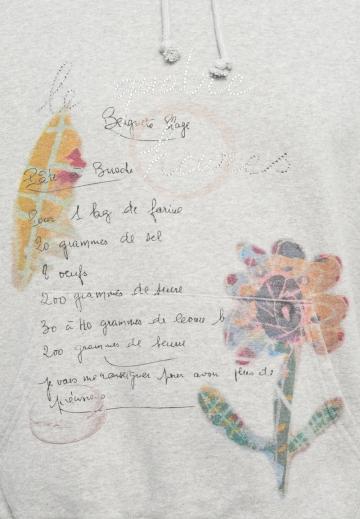 le
Beignets Mage
Pâte à Brioche
Pour 1 kg de farine
20 grammes de sel
8 oeufs
200 grammes de sucre
30 à 40 grammes de levure b
200 grammes de beurre
je vais me renseigner pour avoir plus de
précisions